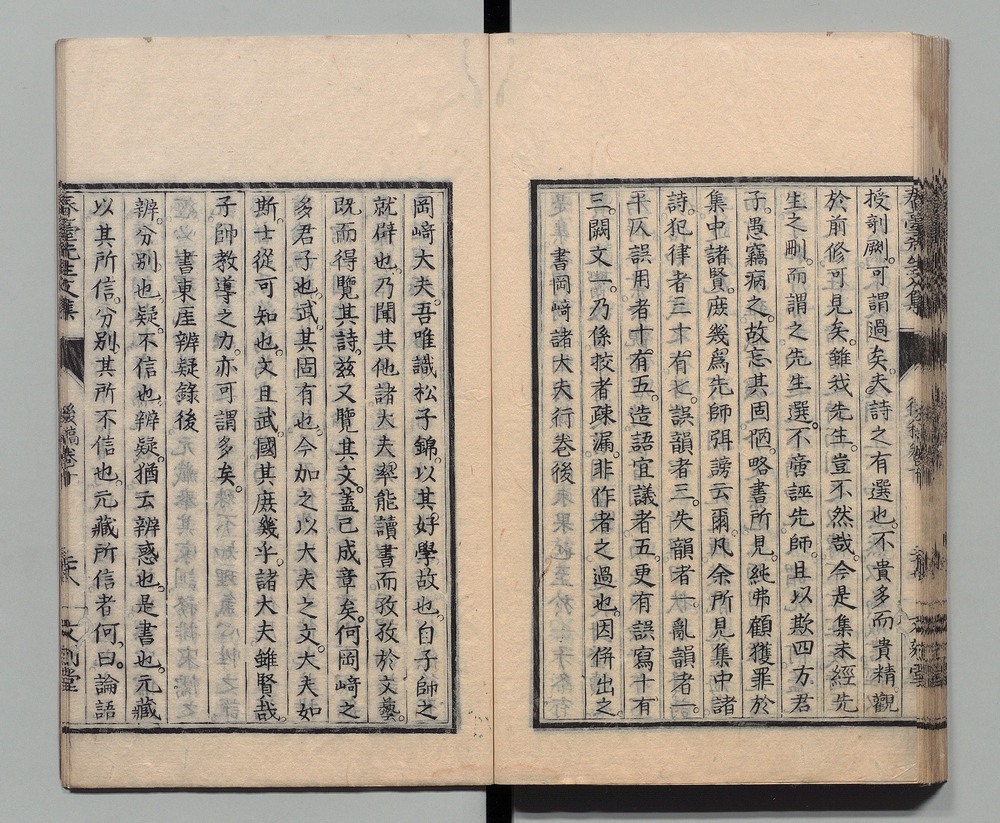 授剞劂。可謂過矣。夫詩之有選也。不貴多而貴精觀
於前修可見矣。雖我先生。豈不然哉。今是集未經先
生之刪。而謂之先生選。不啻誣先師。且以欺四方君
子。愚竊病之。故忘其固陋。略書所見。純弗顧獲罪於
集中諸賢。庶幾爲先師弭謗云爾。凡余所見集中諸
詩。犯律者三十有七。誤韻者三。失韻者一。亂韻者一
平仄誤用者十有五。造語宜議者五。更有誤寫十有
三。闕文一。乃係挍者疎漏。非作者之過也。因併出之
書岡﨑諸大夫行卷後
岡﨑大夫。吾唯識松子錦。以其好學故也。自子師之
就辟也。乃聞其他諸大夫。率能讀書而孜孜於文藝。
既而得覽其詩。茲又覽其文。蓋已成章矣。何岡﨑之
多君子也。武其固有也。今加之以大夫之文。大夫如
斯。士從可知也。文且武。國其庶幾乎。諸大夫雖賢哉。
子師教導之力。亦可謂多矣。
書東厓辨疑錄後
辨。分別也。疑。不信也。辨疑。猶云辨惑也。是書也。元藏
以其所信。分別其所不信也。元藏所信者何。曰。論語
春臺先生文集
後稿卷十